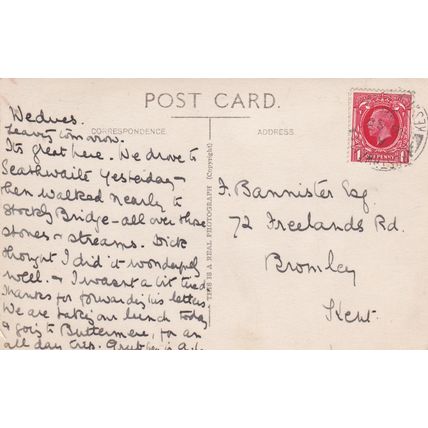 POST CARD.
CORRESPONDENCE
ADDRESS
THIS IS A REAL PHOTOGRAPH (Copyright)
Wednes.
Leaving tomorrow.
Its great here. We drove to
Seathwaite Yesterday –
then walked nearly to
Stockly Bridge – all over those
stones & streams. Dick
thought I did it wonderfully
well. & I wasn't a bit tired
Thanks for forwarding his letters.
We are taking our lunch today
& going to Buttermere, for an
all day trip. Grub
F. Bannister Esq.
72 Freelands Rd.
Bromley
Kent.
1 PENNY 1
KES